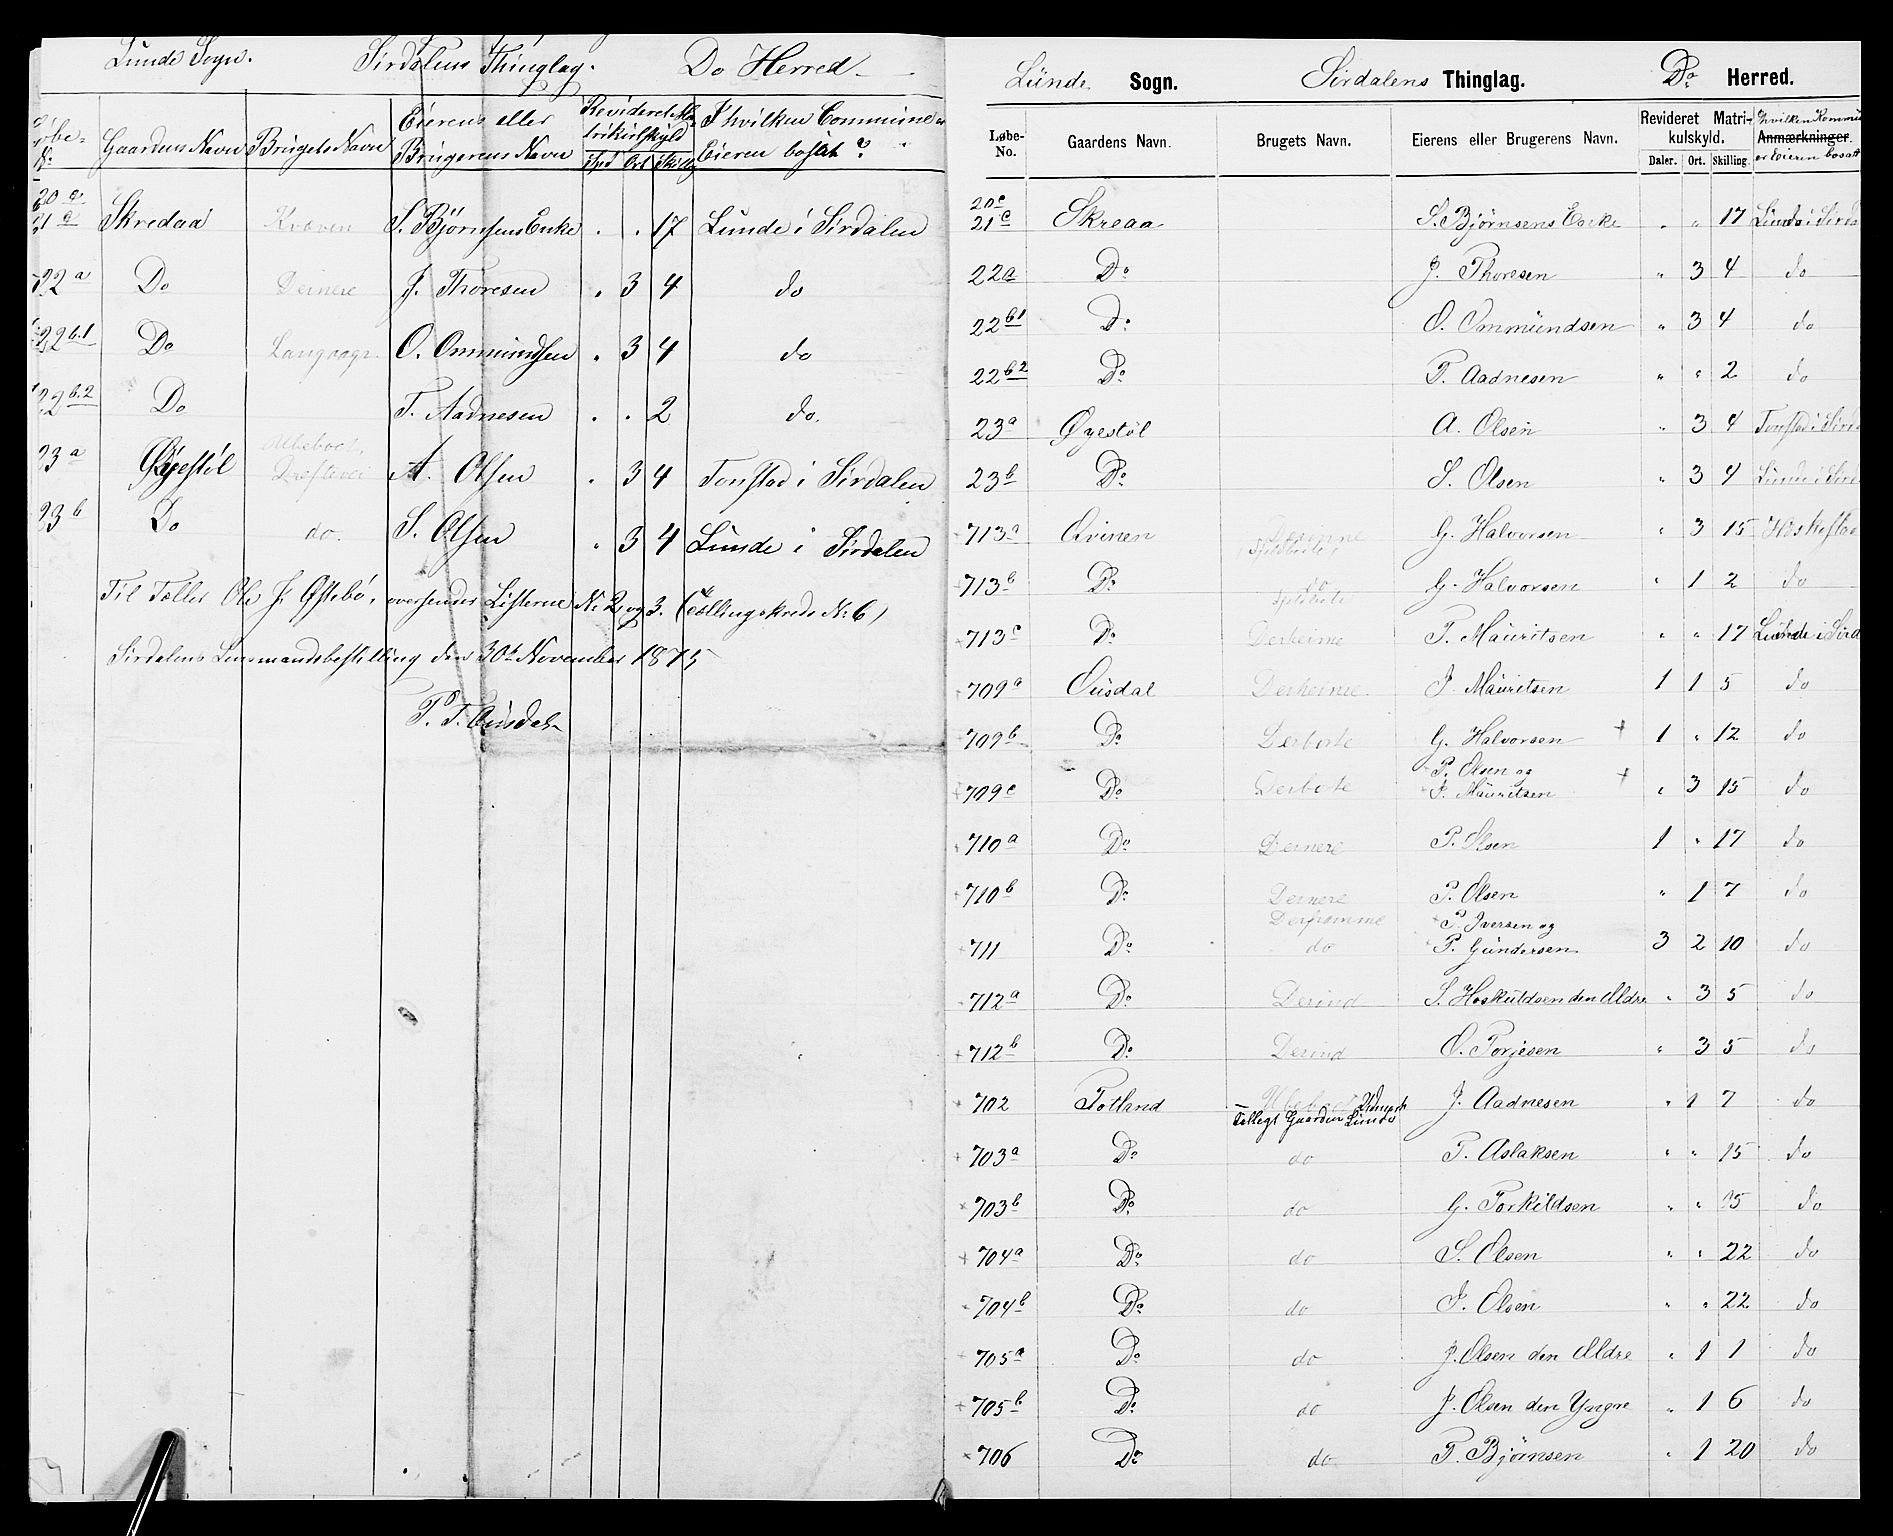 Lunde Sogn. Sirdalens Thinglag. Do Herred
Løbe- No Gaardens Navn Brugets Navn Eierens eller Brugerens Navn Revideret Matrikulskyld Spd Ort Skillg I hvilken Commune er Eieren bosat?
20 c
21 c Skredaa Kvæven S. Bjørnsens Enke . . 17 Lunde i Sirdalen
22 a Do Dernere J. Thoresen . 3 4 do
22 b.1 Do Langaager O. Ommundsen . 3 4 do
22 b.2 Do T. Aadnesen . . 2 do.
23 a Øyestøl A. Olsen . 3 4 Tonstad i Sirdalen
23 b Do do. S. Olsen " 3 4 Lunde i Sirdalen
Til Tæller Ole J. Østebø, oversendes Listerne No 2 og 3. (Tællingskreds No 6)
Sirdalens Lensmandsbestilling den 30te November 1875
P. T. Ousdal
Lunde Sogn. Sirdalens Thinglag. Do Herred.
Løbe- No. Gaardens Navn. Brugets Navn. Eierens eller Brugerens Navn. Revideret Matrikulskyld. Daler. Ort. Skilling. I hvilken Kommune Anmærkninger. er Eieren bosat
20 c
21 c Skreaa S. Bjørnsens Enke " " 17 Lunde i Sird
22a Do J. Thoresen " 3 4 do
22 b1 Do O. Ommundsen " 3 4 do
22 b2 Do T. Aadnesen " " 2 do
23 a Øyestøl A. Olsen " 3 4 Tonstad i Sird
23 b Do S. Olsen " 3 4 Lunde i Sird
713 a Qvinen G. Halvorsen " 3 15
713 b Do do G. Halvorsen " 1 2 do
713 c Do Derheime T. Mauritsen " " 17 Lunde i Sird
709 a Ousdal Derheime J. Mauritsen 1 1 5 do
709 b Do Derborte G. Halvorsen + 1 " 12 do
709 c Do Derborte P. Olsen og
J. Mauritsen + " 3 15 do
710 a Do Dernere P. Olsen 1 " 17 do
710 b Do Dernere P. Olsen " 1 7 do
Derframme P. Iversen og
711 Do do P. Gundersen 3 2 10 do
712 a Do Derind S. Hoskuldsen den Ældre " 3 5 do
712 b Do Derind O. Torjesen " 3 5 do
702 Totland Ubeboet Udmark J. Aadnesen " 1 7 do
Tillegt Gaarden Lunde
703 a Do do T. Aslaksen " " 15 do
703 b Do do G. Torkildsen " " 15 do
704 a Do do S. Olsen " " 22 do
704 b Do do J. Olsen " " 22 do
705 a Do do J. Olsen den Ældre " 1 1 do
705 b Do do J. Olsen den Yngre " 1 6 do
706 Do do T. Bjørnsen " 1 20 do